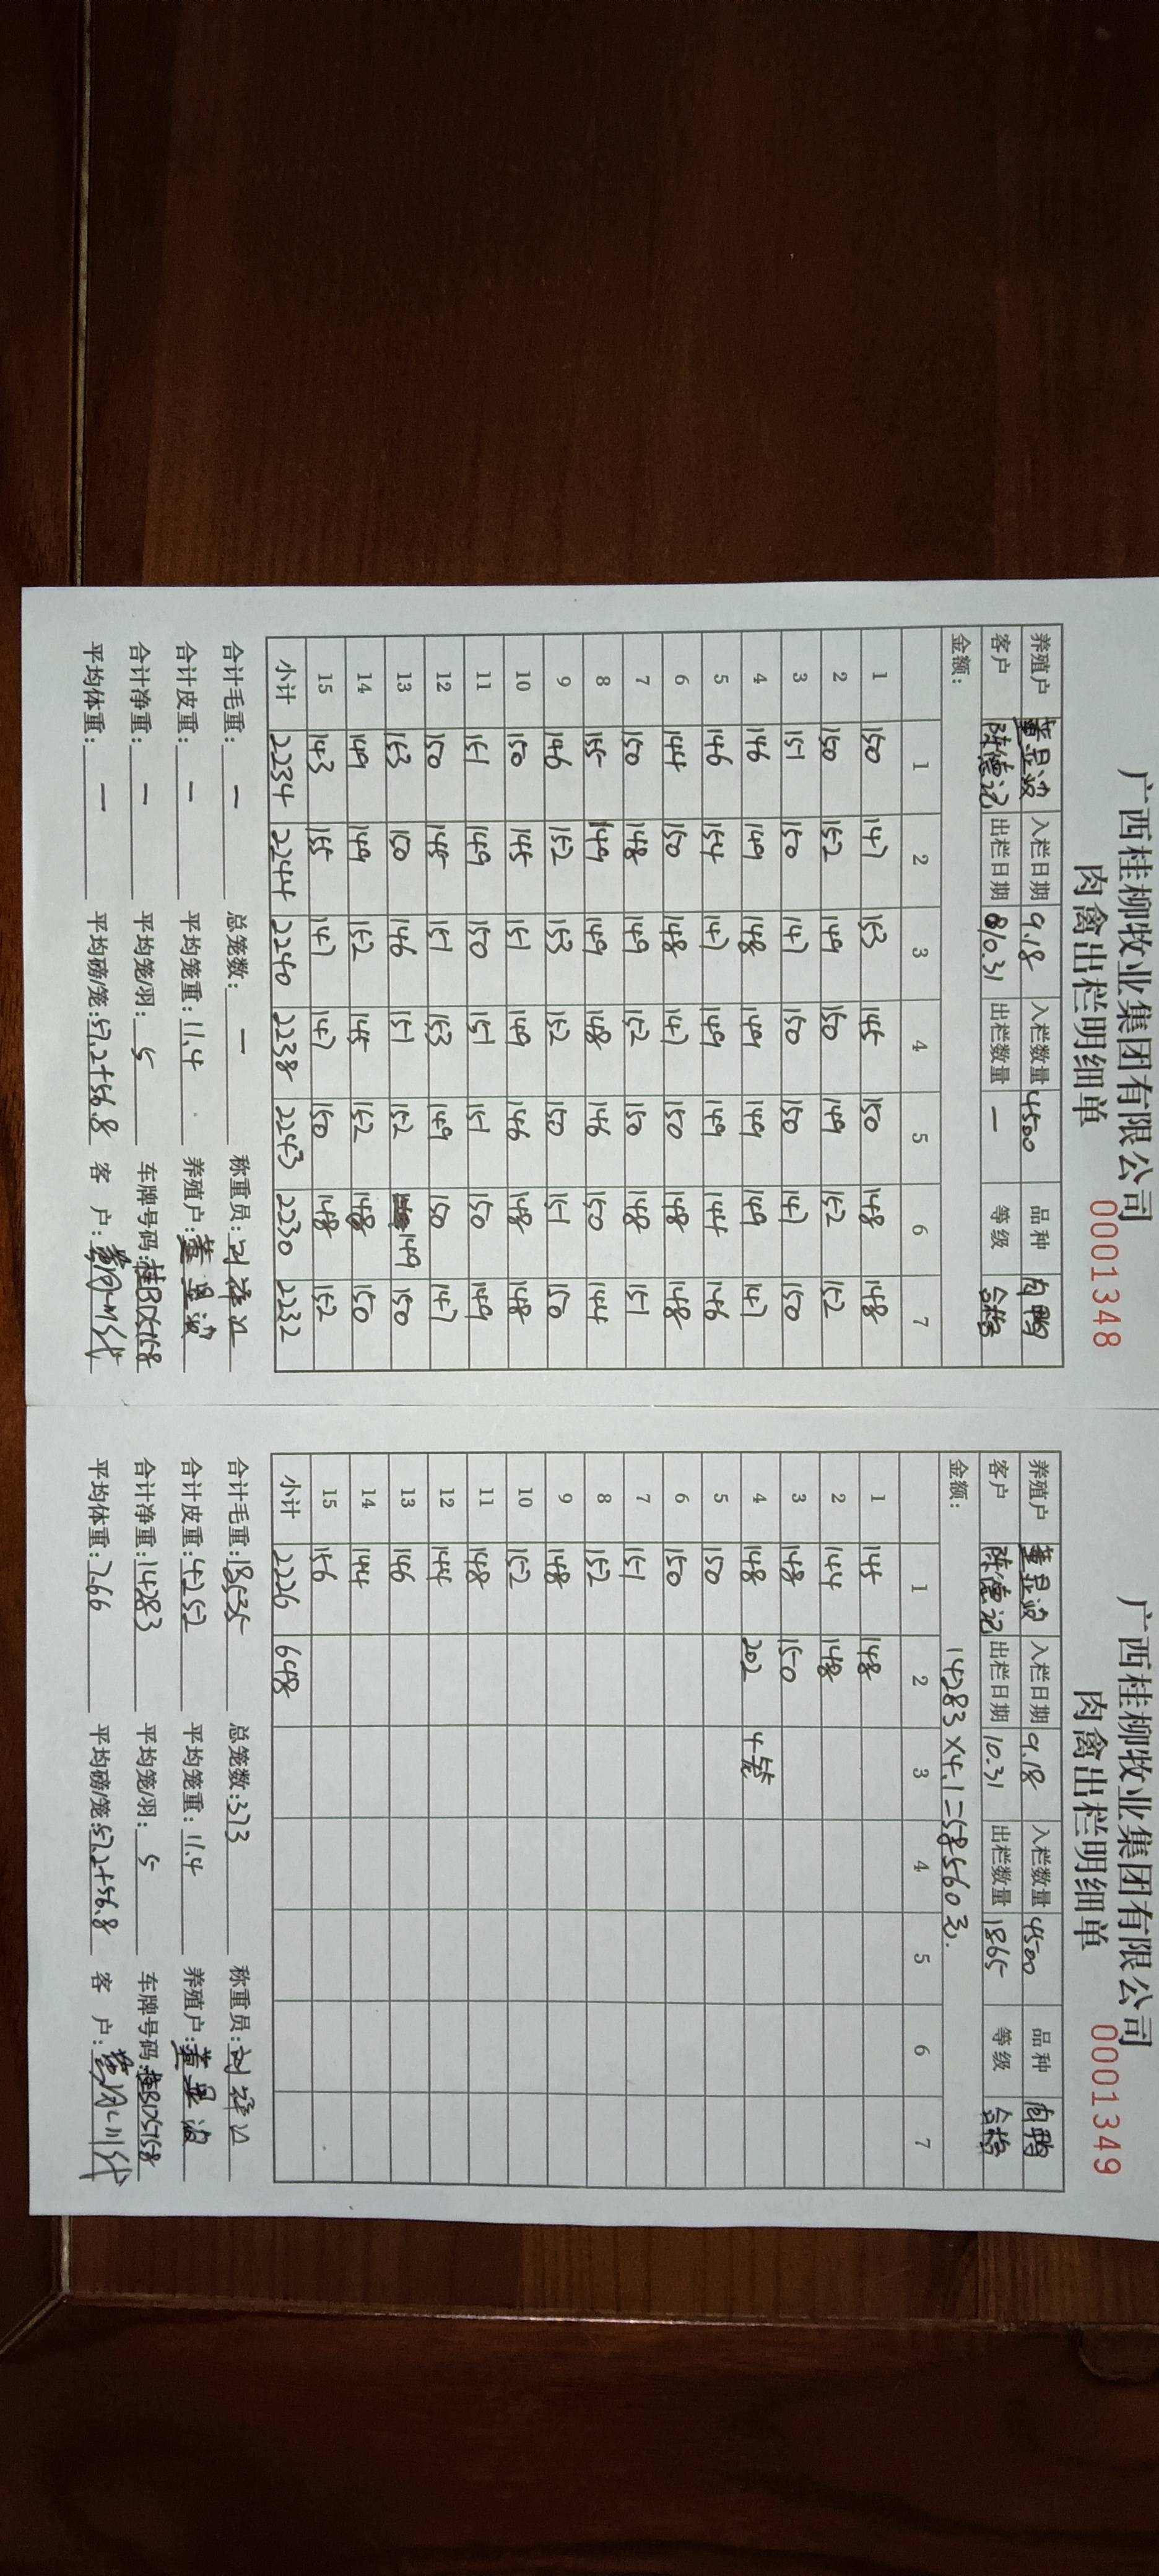 广西桂柳牧业集团有限公司
肉禽出栏明细单 0001348
养殖户 董显波 入栏日期 9.18 入栏数量 4500 品种 肉鸭
客户 陈德记 出栏日期 10.31 出栏数量 — 等级 合格
金额：
1 2 3 4 5 6 7
1 150 147 153 145 150 148 148
2 150 152 149 150 149 152 152
3 151 150 147 150 150 147 150
4 146 149 148 149 149 149 147
5 146 154 147 149 149 144 146
6 144 150 148 147 150 148 148
7 150 148 149 152 150 148 151
8 155 149 149 148 146 150 144
9 146 152 153 152 150 151 150
10 150 145 151 149 146 148 148
11 151 149 150 151 151 150 149
12 150 145 151 153 149 150 147
13 153 150 146 151 152 149 150
14 149 149 152 145 152 148 150
15 143 155 147 147 150 148 152
小计 2234 2244 2240 2238 2243 2230 2232
合计毛重：— 总笼数：— 称重员：
合计皮重：— 平均笼重：11.4 养殖户：董显波
合计净重：— 平均笼/羽：5 车牌号码：桂BD5758
平均体重：— 平均磅/笼：57.2+56.8 客 户：
广西桂柳牧业集团有限公司
肉禽出栏明细单 0001349
养殖户 董显波 入栏日期 9.18 入栏数量 4500 品种 肉鸭
客户 陈德记 出栏日期 10.31 出栏数量 1865 等级 合格
金额： 14283×4.1=58560元.
1 2 3 4 5 6 7
1 145 148
2 144 148
3 148 150
4 148 202 4笼
5 150
6 150
7 151
8 152
9 148
10 152
11 148
12 144
13 146
14 144
15 156
小计 2226 648
合计毛重：18535 总笼数：373 称重员：
合计皮重：4252 平均笼重：11.4 养殖户：董显波
合计净重：14283 平均笼/羽：5 车牌号码：桂BD5758
平均体重：7.66 平均磅/笼：57.2+56.8 客 户：